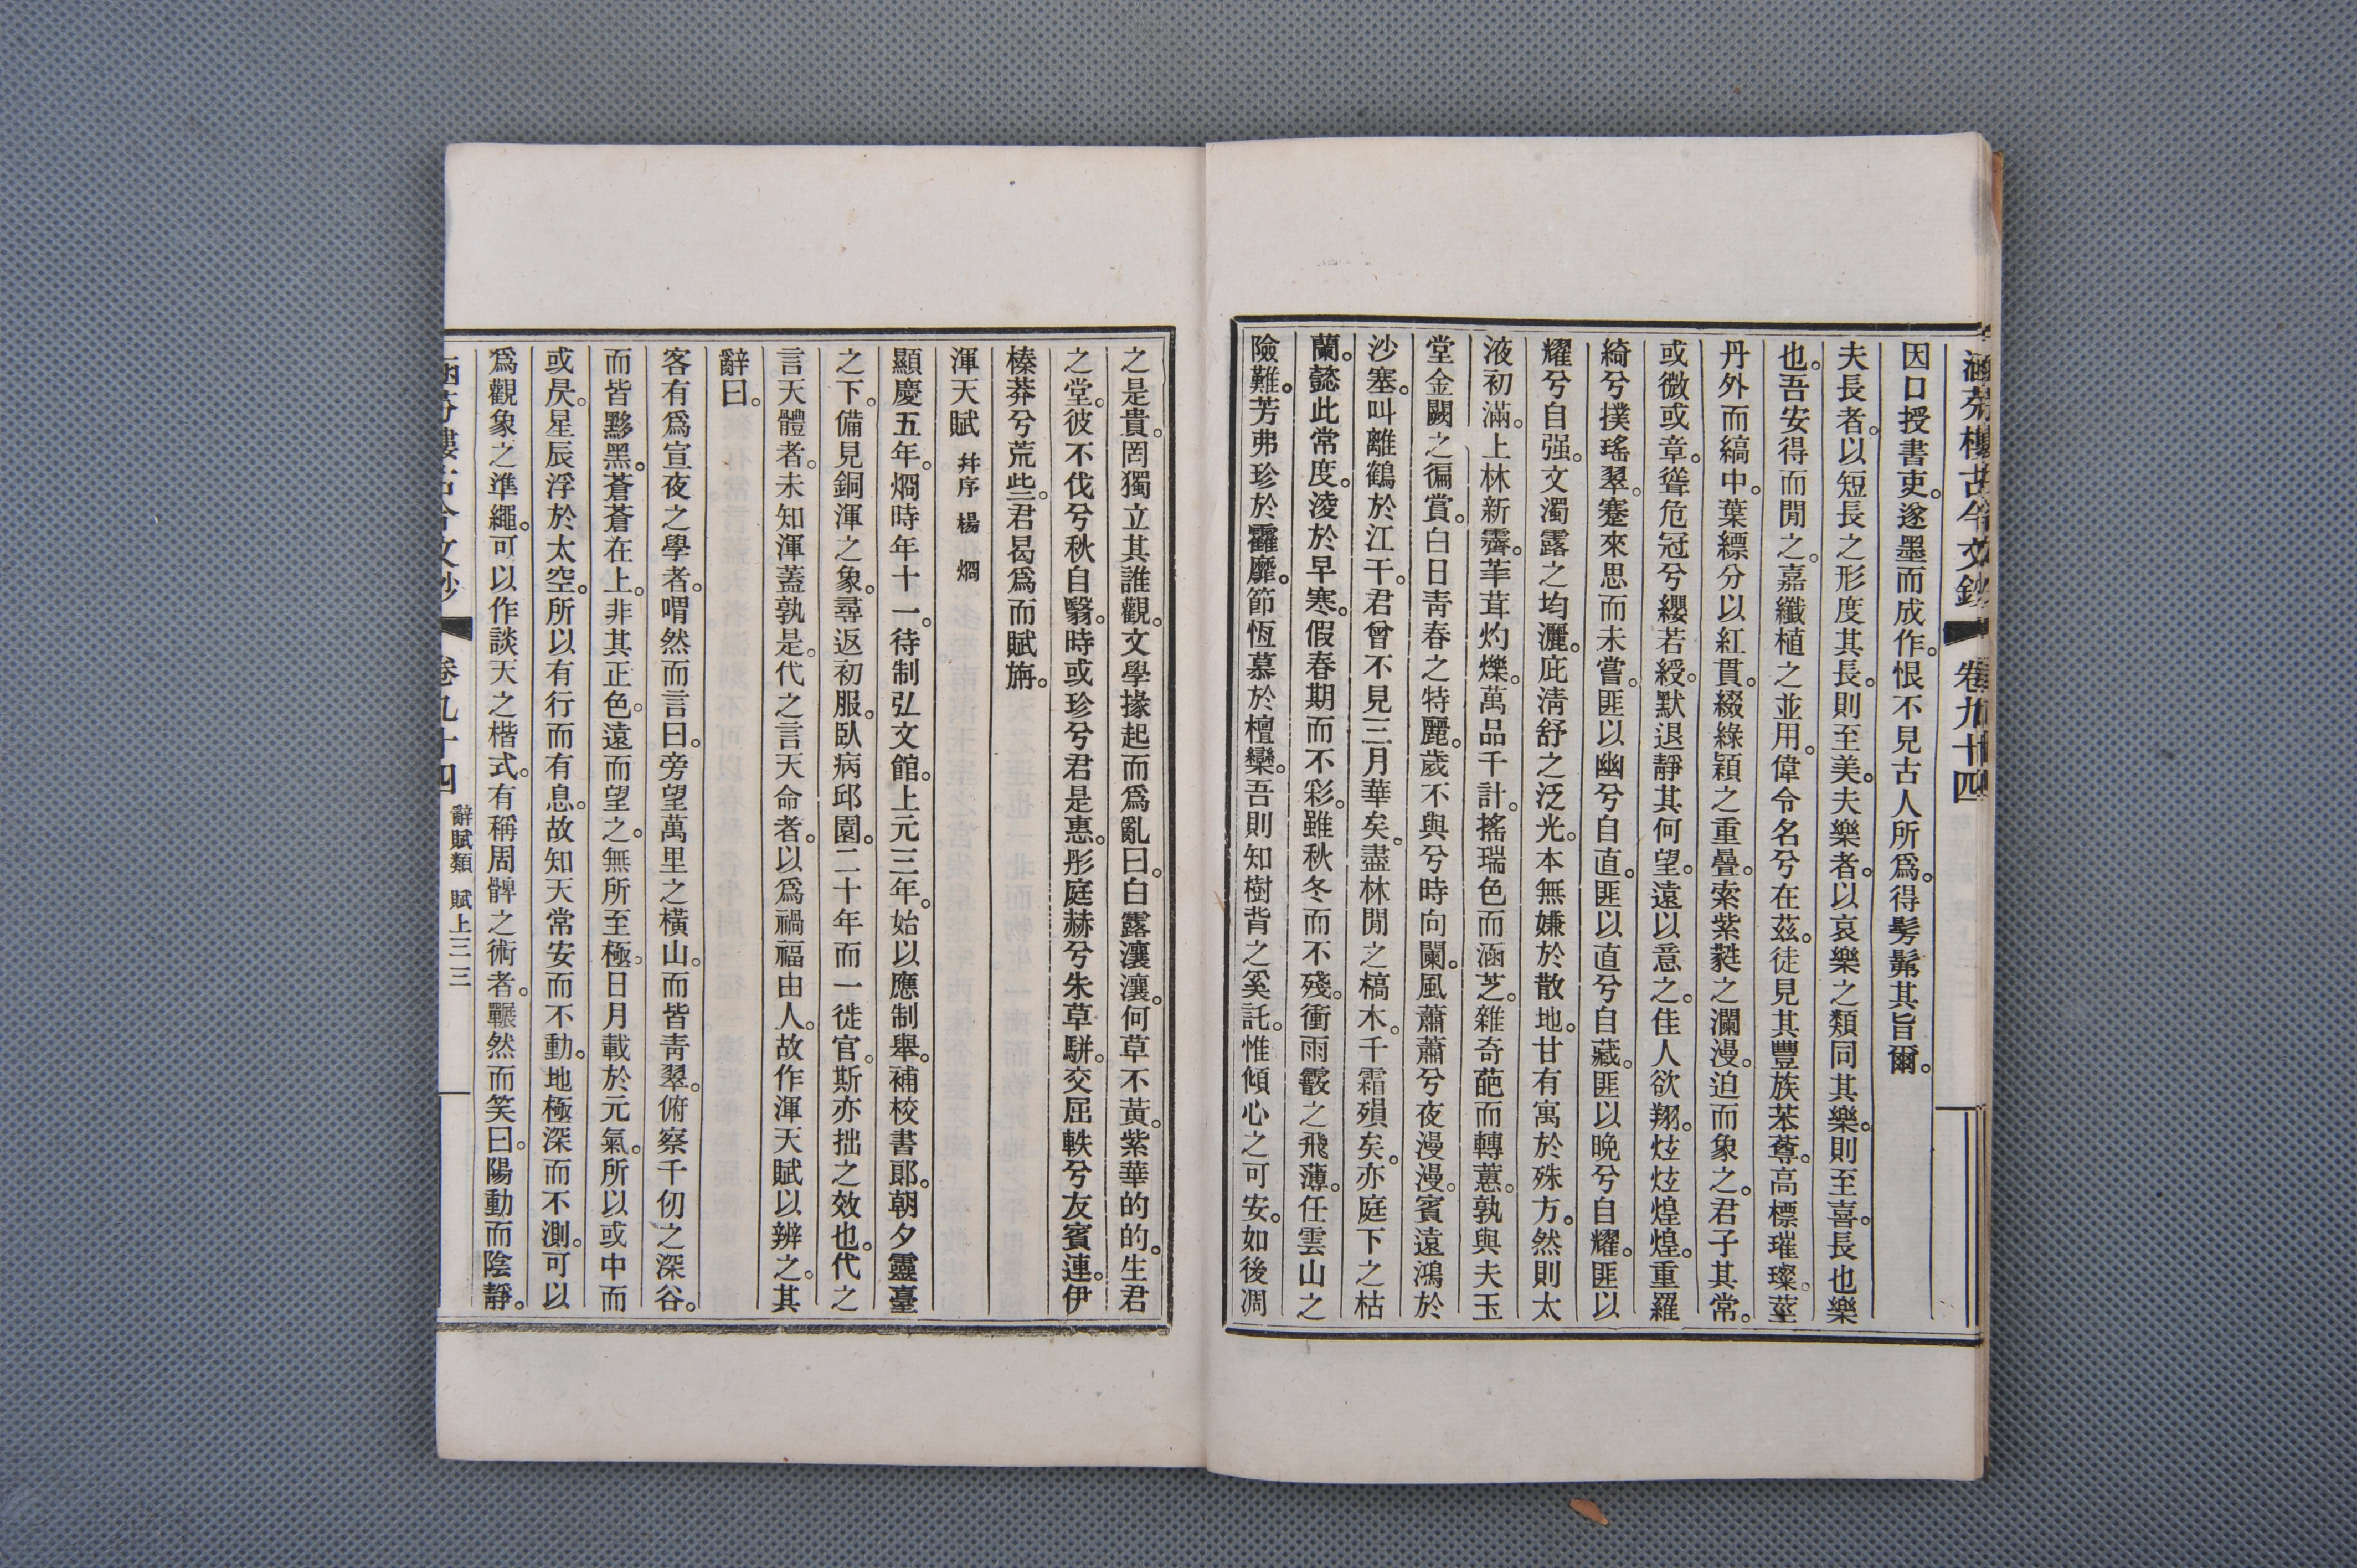 涵芬樓古今文鈔 卷九十四
因口授書吏。遂墨而成作。恨不見古人所爲。得髣髴其旨爾。
夫長者。以短長之形度其長。則至美。夫樂者。以哀樂之類同其樂。則至喜。長也樂
也。吾安得而閒之。嘉纖植之並用。偉令名兮在茲。徒見其豐族苯䔿。高標璀璨。莖
丹外而縞中。葉縹分以紅貫。綴綠穎之重疊。索紫蕤之瀾漫。迫而象之。君子其常。
或微或章。聳危冠兮纓若綬。默退靜其何望。遠以意之。佳人欲翔。炫炫煌煌。重羅
綺兮撲瑤翠。蹇來思而未嘗。匪以幽兮自直。匪以直兮自藏。匪以晚兮自耀。匪以
耀兮自强。文濁露之均灑。庇淸舒之泛光。本無嫌於散地。甘有寓於殊方。然則太
液初滿。上林新霽。𦬊茸灼爍。萬品千計。搖瑞色而涵芝。雜奇葩而轉蕙。孰與夫玉
堂金闕之徧賞。白日靑春之特麗。歲不與兮時向闌。風蕭蕭兮夜漫漫。賓遠鴻於
沙塞。叫離鶴於江干。君曾不見三月華矣。盡林閒之槁木。千霜殞矣。亦庭下之枯
蘭。懿此常度。淩於早寒。假春期而不彩。雖秋冬而不殘。衝雨霰之飛薄。任雲山之
險難。芳弗珍於靃靡。節恆慕於檀欒。吾則知樹背之奚託。惟傾心之可安。如後凋
之是貴。罔獨立其誰觀。文學掾起而爲亂曰。白露瀼瀼。何草不黃。紫華的的。生君
之堂。彼不伐兮秋自翳。時或珍兮君是惠。彤庭赫兮朱草駢。交屈軼兮友賓連。伊
榛莽兮荒些。君曷爲而賦旃。
渾天賦 幷序 楊 烱
顯慶五年。烱時年十一。待制弘文館。上元三年。始以應制舉。補校書郞。朝夕靈臺
之下。備見銅渾之象。尋返初服。臥病邱園。二十年而一徙官。斯亦拙之效也。代之
言天體者。未知渾蓋孰是。代之言天命者。以爲禍福由人。故作渾天賦以辨之。其
辭曰。
客有爲宣夜之學者。喟然而言曰。旁望萬里之橫山。而皆靑翠。俯察千仞之深谷。
而皆黟黑。蒼蒼在上。非其正色。遠而望之。無所至極。日月載於元氣。所以或中而
或昃。星辰浮於太空。所以有行而有息。故知天常安而不動。地極深而不測。可以
爲觀象之準繩。可以作談天之楷式。有稱周髀之術者。囅然而笑曰。陽動而陰靜。
涵芬樓古今文鈔 卷九十四 辭賦類 賦上三 三